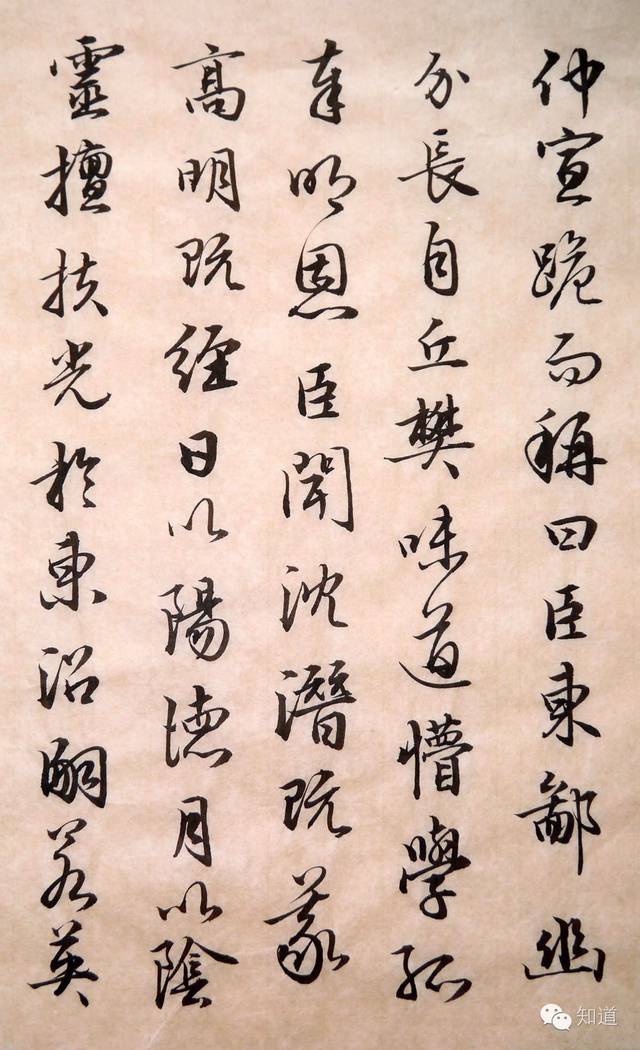 仲宣跪而稱曰臣東鄙幽
介長自丘樊味道懵學孤
奉明恩臣聞沈潛既義
高明既經日以陽德月以陰
靈擅扶光於東沼嗣若英
知道